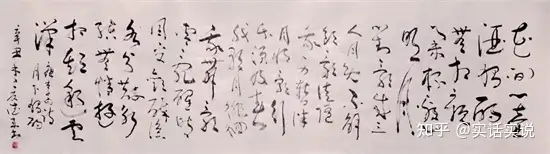 花间一壶
酒独酌
无相亲
举杯邀
明月
对影成三
人月既不解
饮影徒随
我身暂伴
月将影行
乐须及春
我歌月徘徊
我舞影
零乱醒时
同交欢醉后
各分散永
结无情游
相期邈云
汉
李白诗
月下独酌
辛丑
知乎 @实话实说